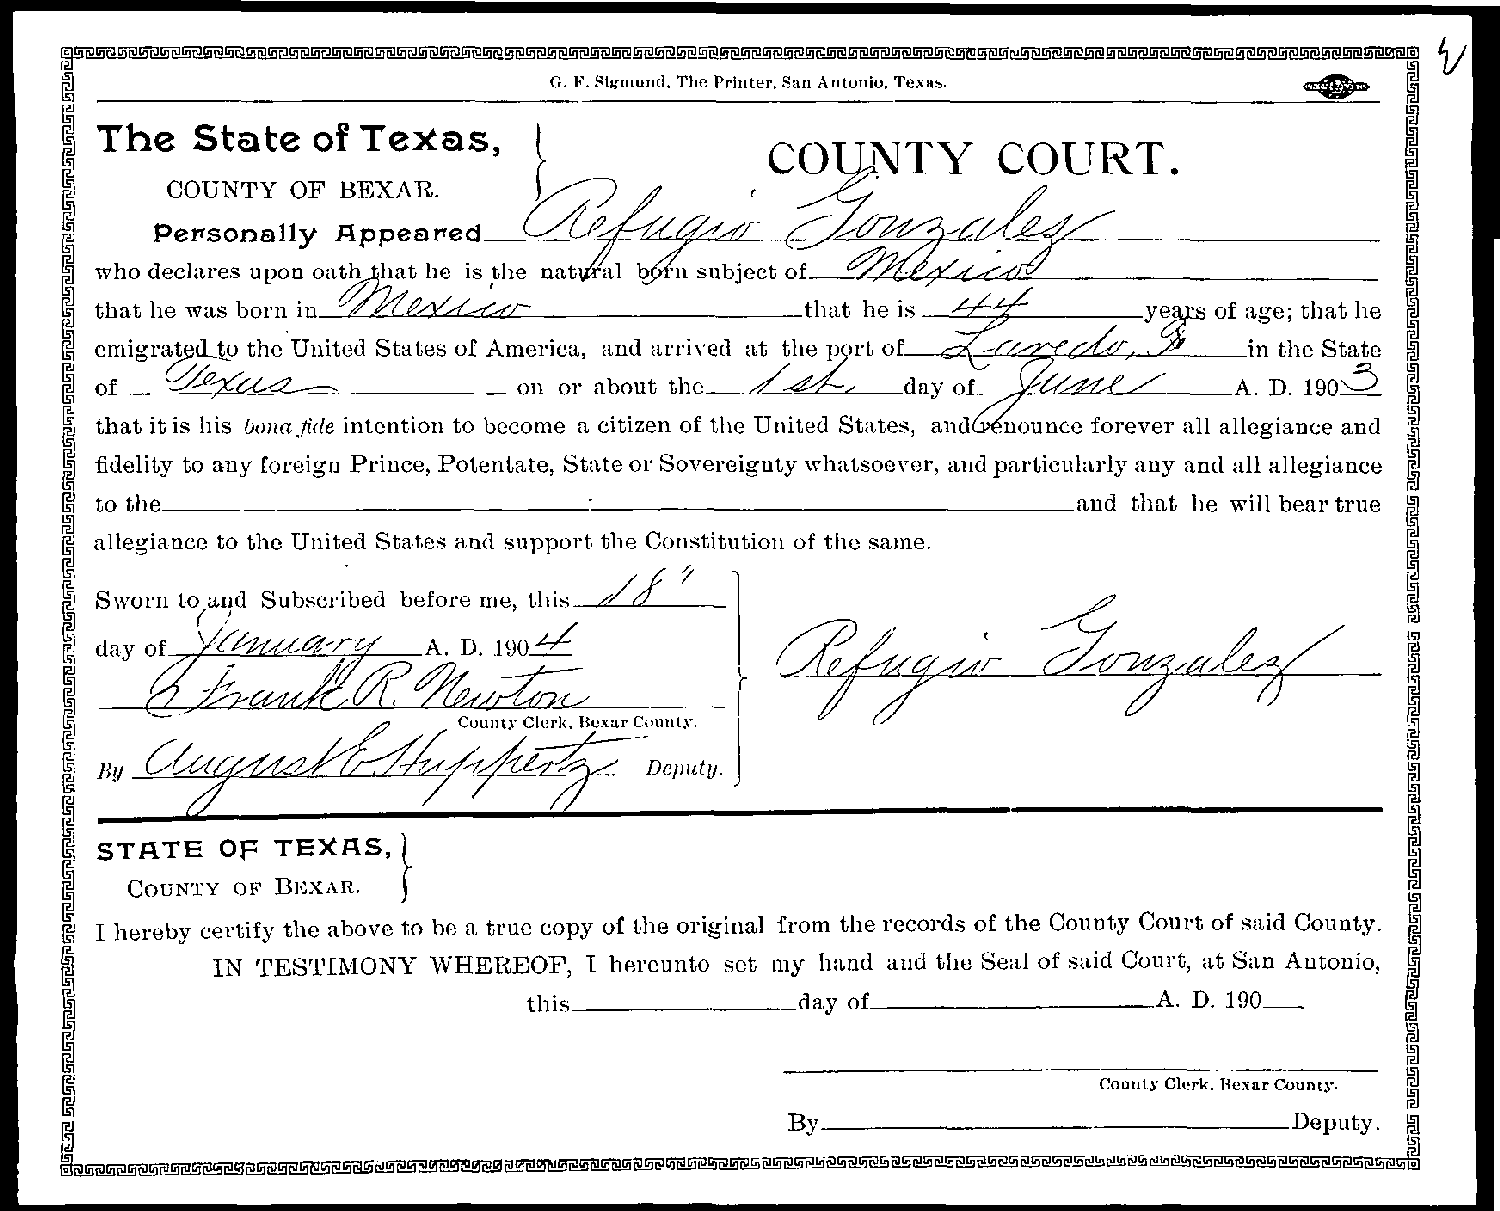 G. F. Sigmund, The Printer, San Antonio, Texas.
The State of Texas,
COUNTY OF BEXAR.
COUNTY COURT.
Personally Appeared Refugio Gonzales
who declares upon oath that he is the natural born subject of Mexico
that he was born in Mexico that he is 44 years of age; that he
emigrated to the United States of America, and arrived at the port of Laredo, in the State
of Texas on or about the 1st. day of June A. D. 1903
that it is his bona fide intention to become a citizen of the United States, and renounce forever all allegiance and
fidelity to any foreign Prince, Potentate, State or Sovereignty whatsoever, and particularly any and all allegiance
to the and that he will bear true
allegiance to the United States and support the Constitution of the same.
Sworn to and Subscribed before me, this 18"
day of January A. D. 1904
Frank R. Newton
County Clerk, Bexar County.
By August E Huppertz Deputy.
Refugio Gonzalez
STATE OF TEXAS,
COUNTY OF BEXAR.
I hereby certify the above to be a true copy of the original from the records of the County Court of said County.
IN TESTIMONY WHEREOF, I hereunto set my hand and the Seal of said Court, at San Antonio,
this day of A. D. 190
County Clerk, Bexar County.
By Deputy.